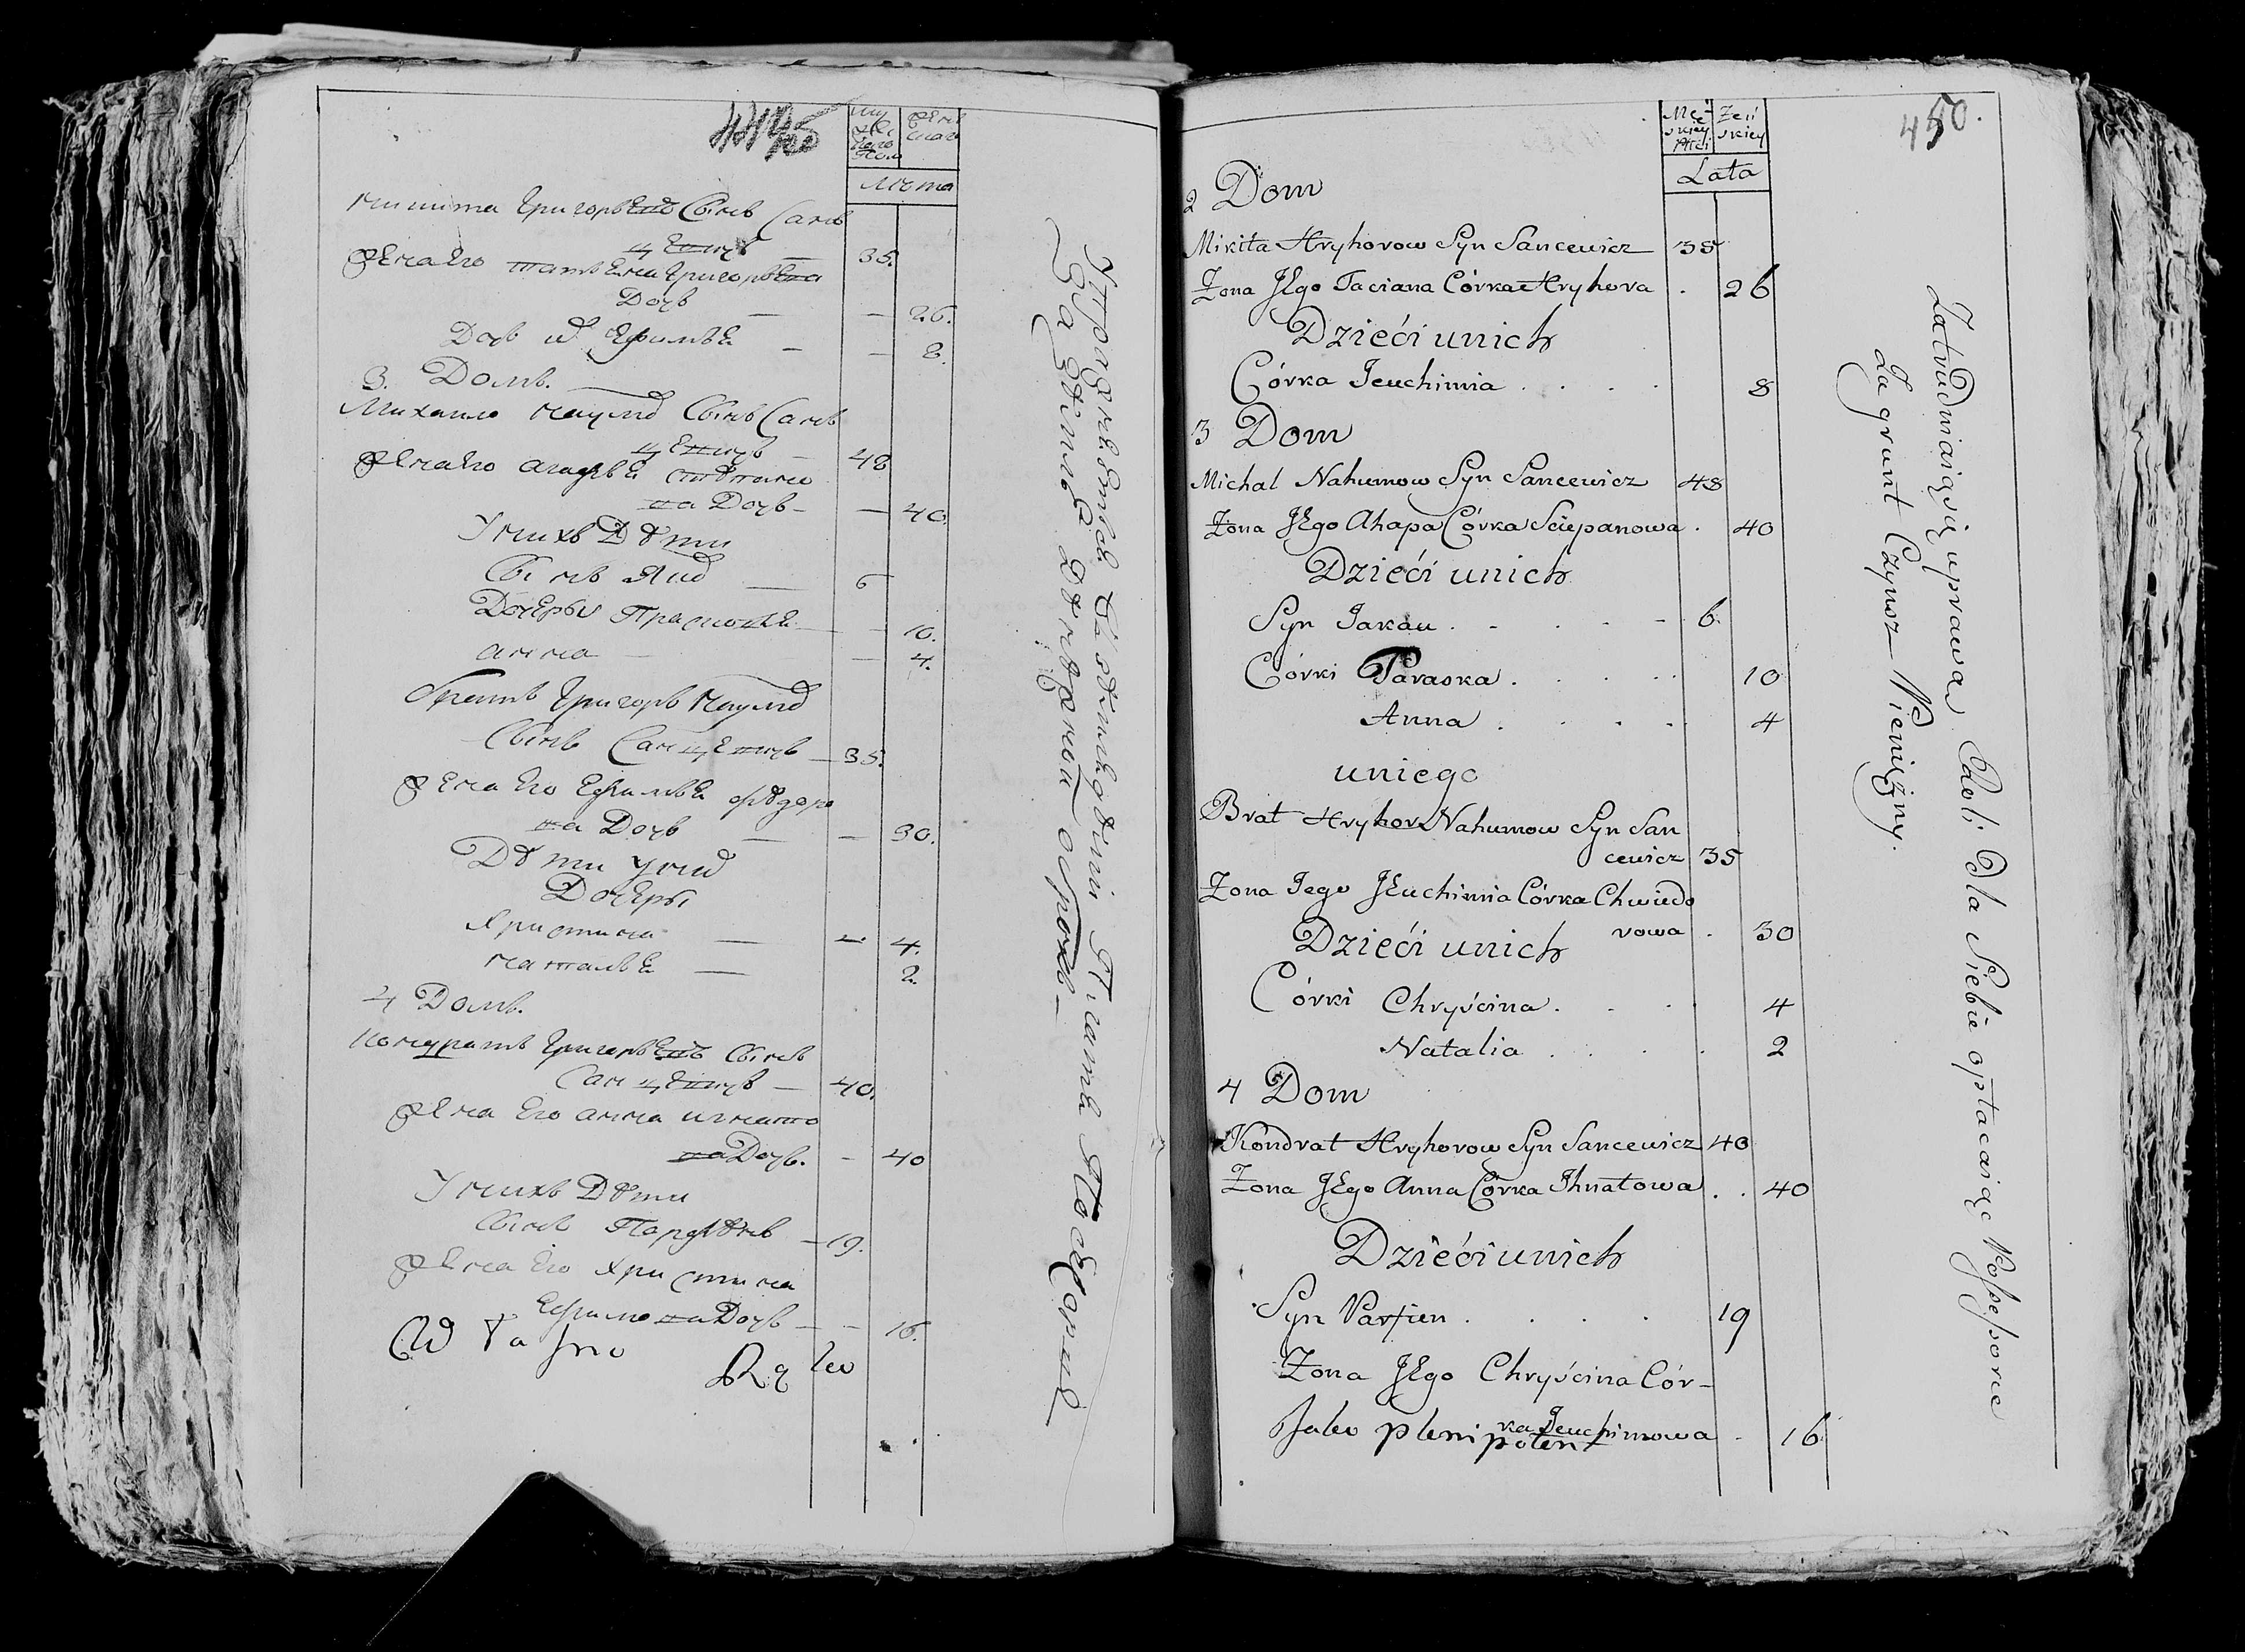 Му
жес
каго
пола
женс
каго
Лѣта
Никита Григорьевъ Сынъ Сан
цевичъ — 35.
Жена Его Татьена Григорьева
Дочь — — 26.
Дочь и Ефимья — — 8.
3. Домъ.
Михайло Наумов Сынъ Сан
цевичъ — 48
Жена Его Агафья Степано
ва Дочь — — 40.
У нихъ Дѣти
Сынъ Яков — 6
Дочеры Прасковья — — 10.
анна — — 4.
Братъ Григоръ Наумов
Сынъ Санцевичъ — 35.
Жена Его Ефимья Федоро
ва Дочь — — 30.
Дѣти у них
Дочеры
Христина — — 4.
Наталья — 2.
4 Домъ.
Кондратъ Григорьевъ Сынъ
Санцевичъ — 40.
Жена Его анна игнато
ва Дочь. — 40
У нихъ Дѣти
Сынъ Парфѣнъ — 19.
Жена Его Христина
Ефимова Дочь — — 16.
Własno
Ręko
450.
Męż
skiey
Płci
Żeń
skiey
Lata
2 Dom
Mikita Hryhorow Syn Sancewicz 35
Żona JEgo Taciana Córka Hryhora . 26
Dzieći unich
Córka Jeuchimia . . . . 8
3 Dom
Michal Nahumow Syn Sancewicz 48
Żona JEgo Ahapa Córka Sciepanowa . 40
Dzieći unich
Syn Jakau . - . - - 6.
Córki Paraska . . . . . 10
Anna . . . . 4
uniego
Brat Hryhor Nahumow Syn San
cewicz 35
Żona Jego JEuchimia Córka Chwiedo
rowa . 30
Dzieći unich
Córki Chryścina . . . 4
Natalia . . . . 2
4 Dom
Kondrat Hryhorow Syn Sancewicz 40
Żona JEgo Anna Córka Jhnatowa . . 40
Dzieći unich
Syn Parfien . . . . 19
Żona JEgo Chryścina Cór-
ka Jeuchimowa . 16
Jako plenipotent
Zatrudniaią się uprawą Roli Dla Siebie opłacaiąc Possessorie
Za grunt Czynsz Pieniężny.